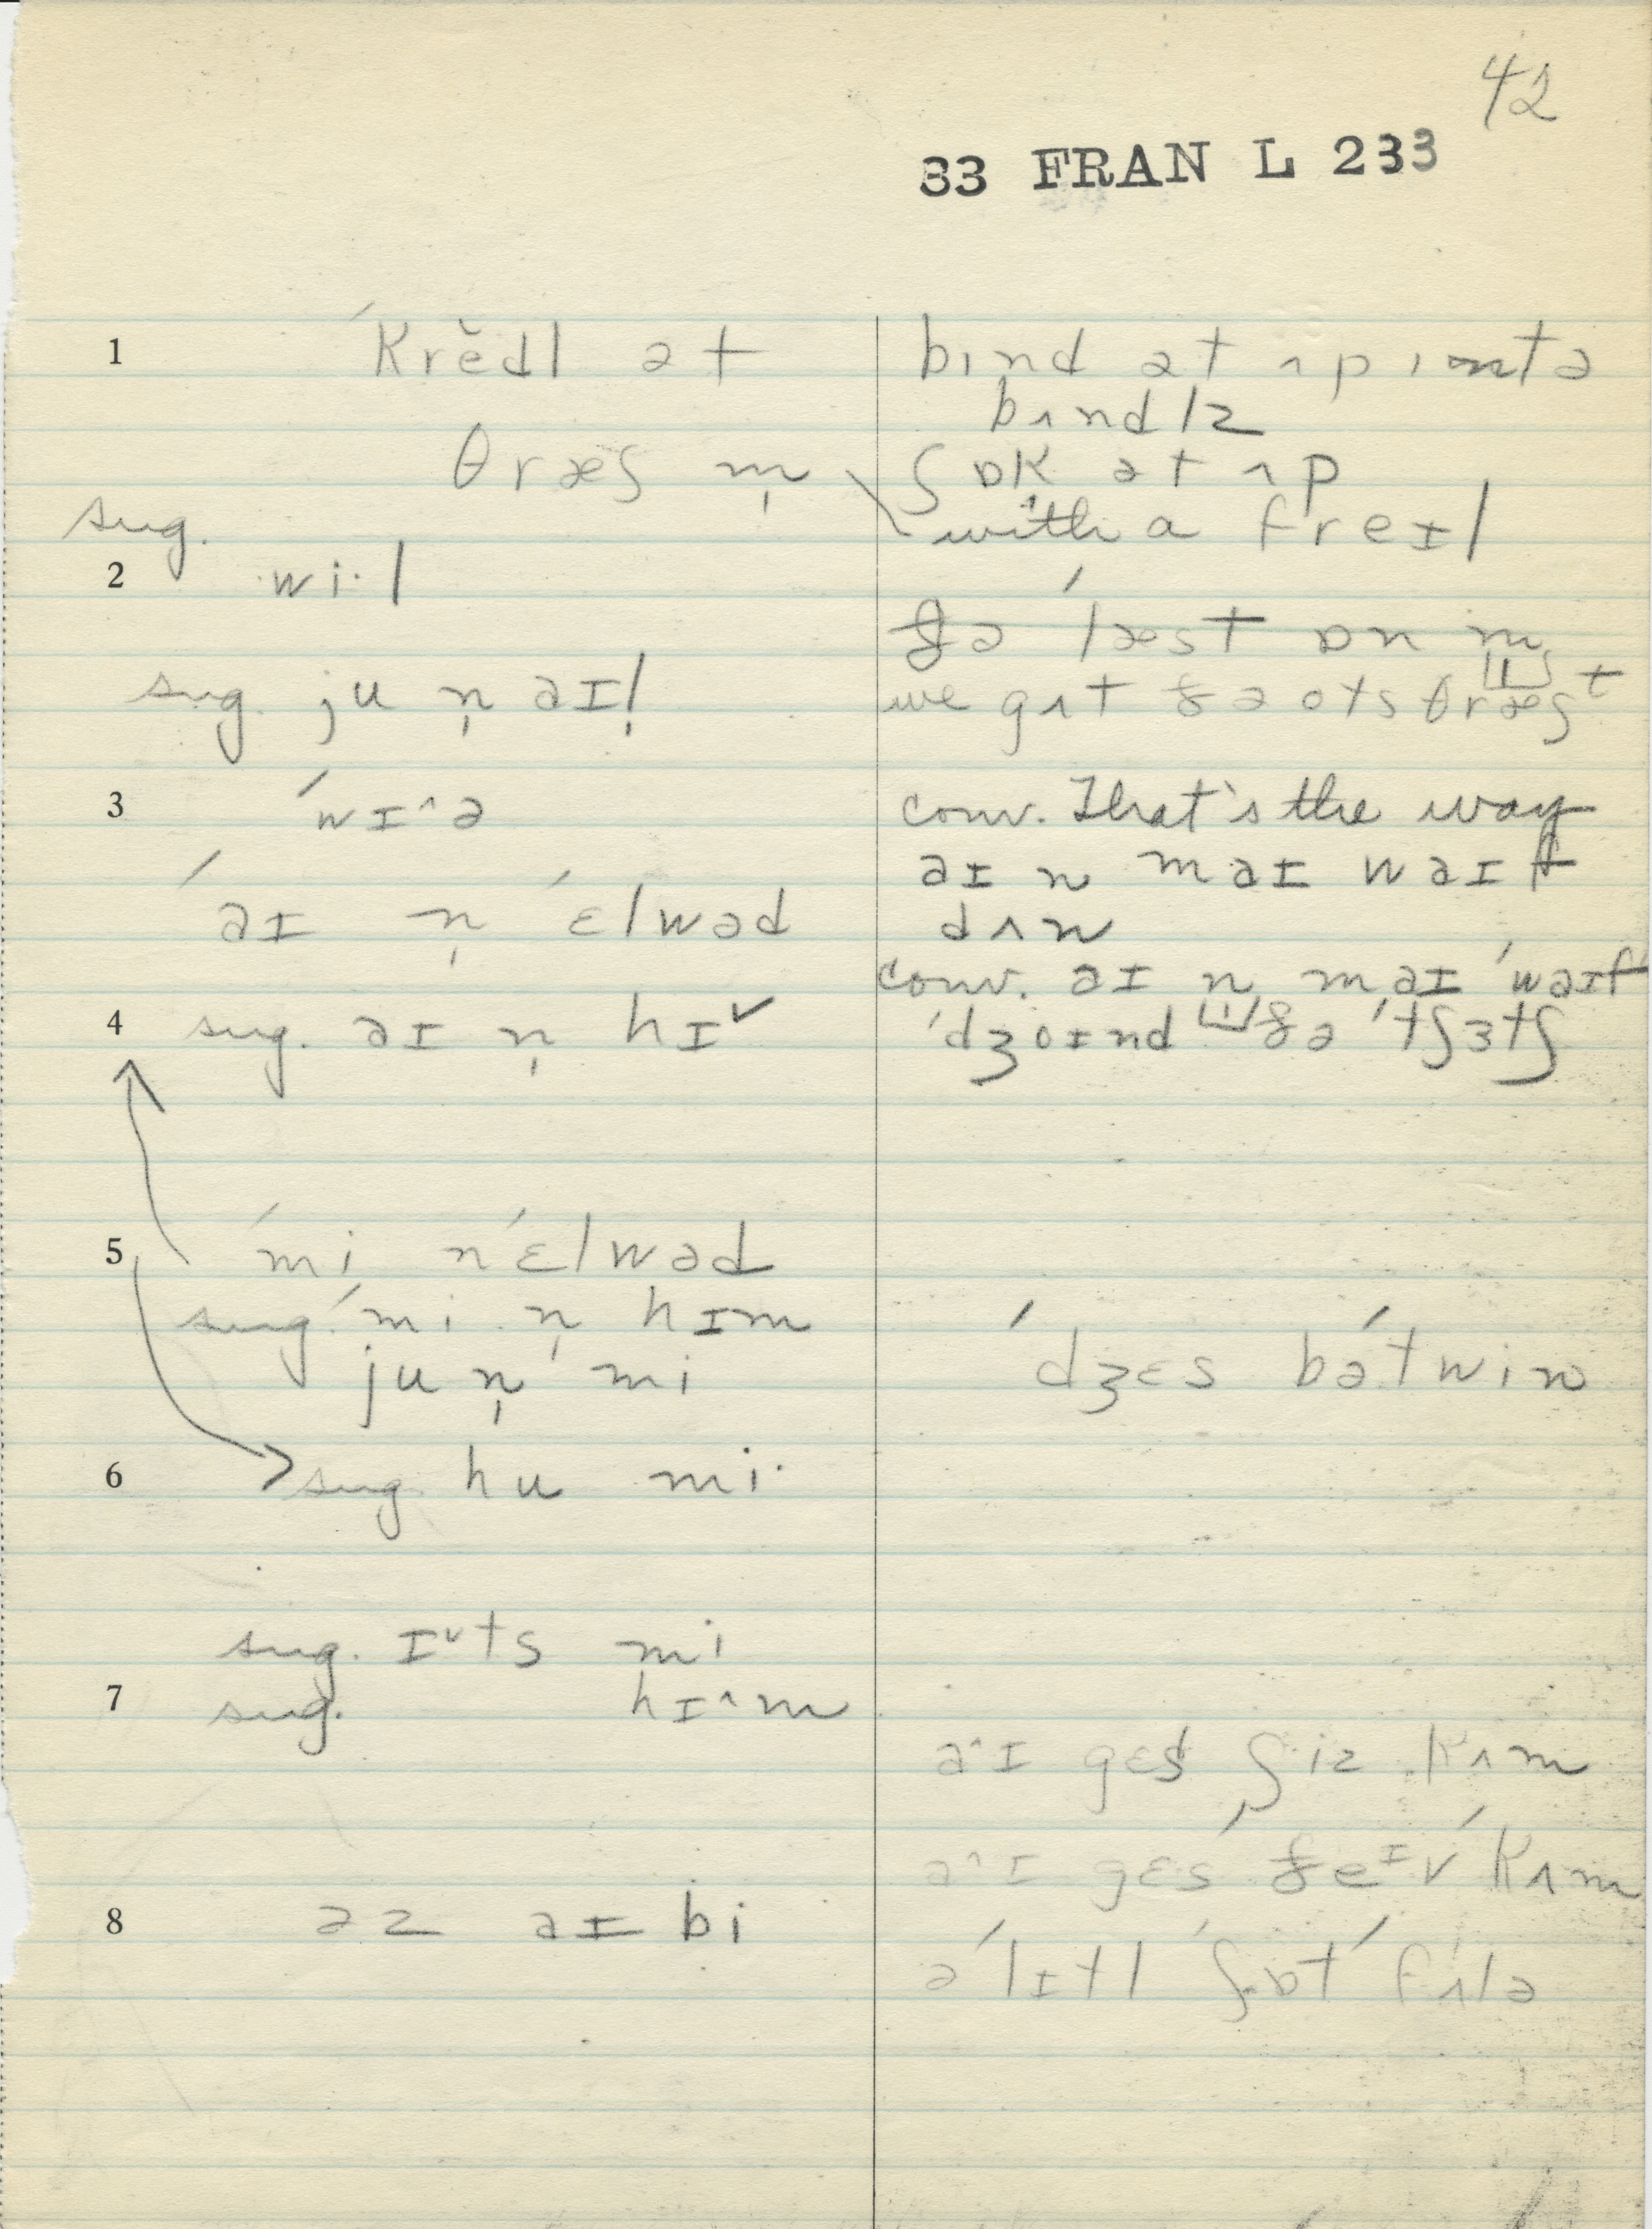 42
33 FRAN L 233
1 ˊkrĕdl ət
bɪnd ət ʌp ɪntə
bʌndlz
θræʃ m̩
ʃɒk ət ʌp
with a freɪl
sug.
2 wi·l
ðə ˊlæst ɒn m
sug. ju n̩ aɪ!
we gʌt ðə ots θræʃt
3 ˊwɪ^ə
conv. That's the way
aɪ n maɪ waɪf
dʌn
ˊaɪ n̩ ˊɛlwəd
conv. aɪ n maɪ ˊwaɪf
4 sug. aɪ n̩ hɪˇ
ˊdʒoɪnd ðə ˊtʃɜtʃ
5 ˊmi nˊɛlwəd
sug. ˊmi n̩ hɪm
ju n̩ ˊmi
ˊdʒɛs bəˊtwin
6 sug. hu mi·
sug. ɪˇts mi
7 sug. hɪ^m
a^ɪ gɛs ʃiz kʌm
a^ɪ gɛsˊ ðeɪv ˊkʌm
8 əz aɪ bi
ə ˊlɪtl ˊʃɒt ˊfʌlə